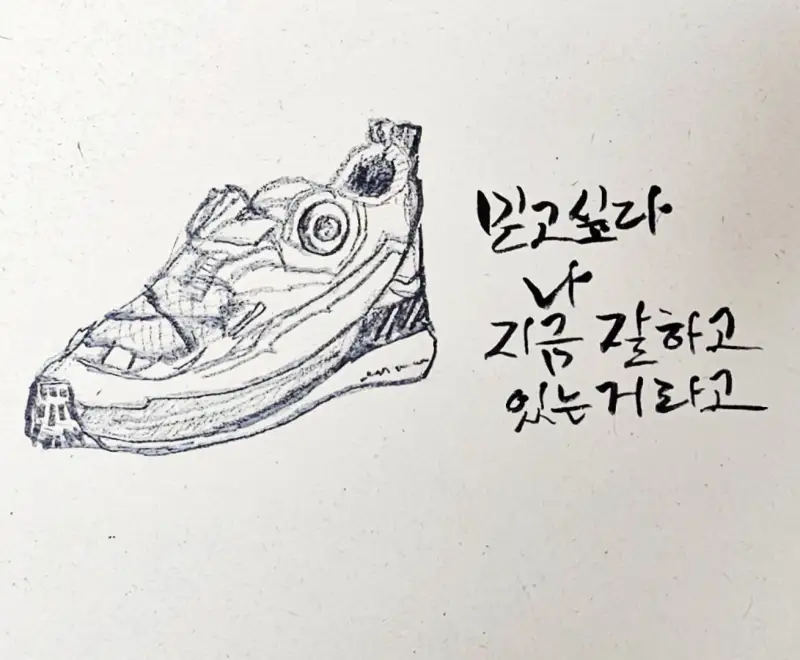 믿고싶다
나
지금 잘하고
있는거라고